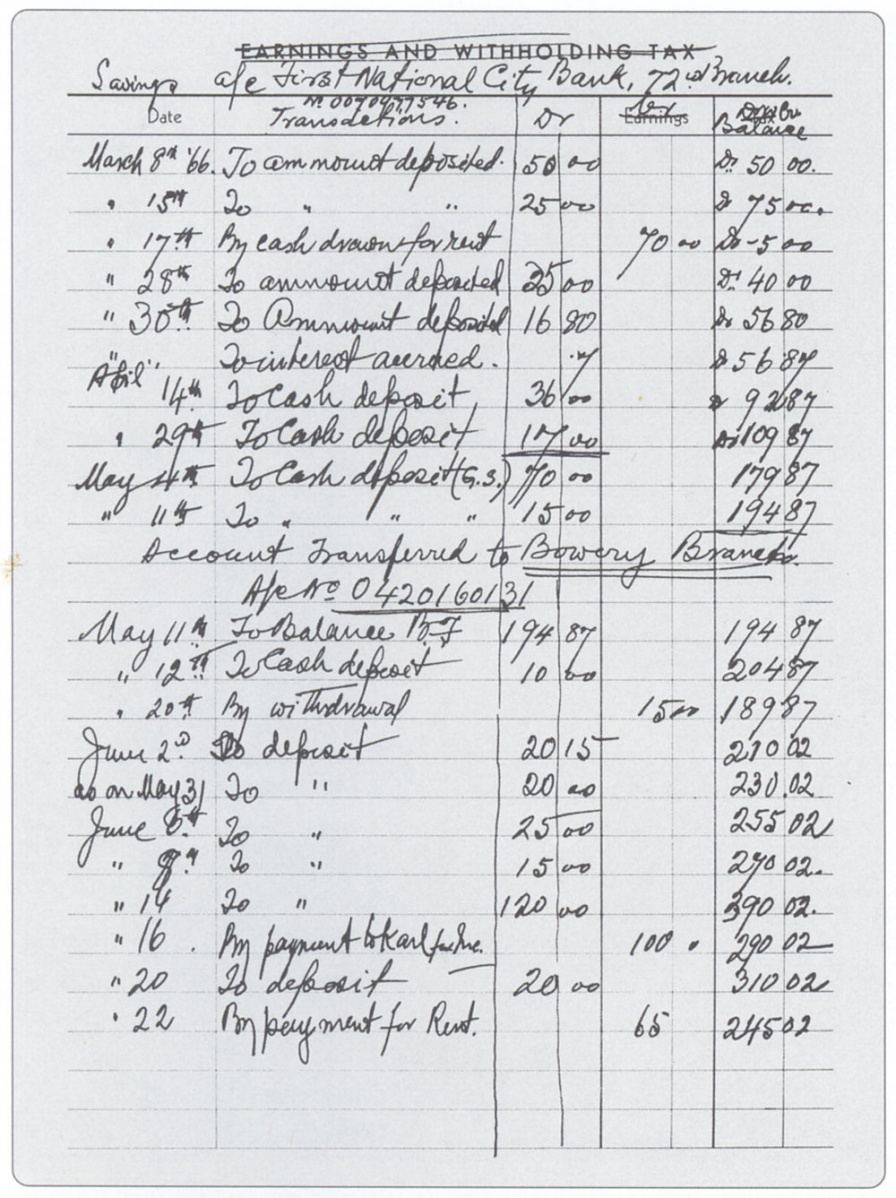 EARNINGS AND WITHHOLDING TAX
Savings a/c First National City Bank, 72nd Branch.
No 0070977546.
Date Transactions. Dr Earnings Balance
March 8th '66. To ammount deposited. 50 00 Dr. 50 00.
" 15th To " " 25 00 Dr 75 00.
" 17th By cash drawn for rent 70 00 Dr -5 00
" 28th To ammount deposited 35 00 Dr. 40 00
" 30th To Ammount deposited 16 80 Dr 56 80
" " To interest accrued. .7 Dr 56 87
April 14th To Cash deposit 36 00 Dr 92 87
" 29th To Cash deposit 17 00 Dr 109 87
May 4th To Cash deposit (G.S.) 70 00 179 87
" 11th To " " " 15 00 194 87
Account Transferred to Bowery Branch.
A/c No 0420160131
May 11th To Balance B.F 194 87 194 87
" 12th To Cash deposit 10 00 204 87
" 20th By withdrawal 15 00 189 87
June 2nd To deposit 20 15 210 02
as on May 31 To " 20 00 230.02
June 6th To " 25 00 255 02
" 8th To " 15 00 270 02.
" 14 To " 120 00 390 02.
" 16 . By payment to Karl 100 . 290 02
" 20 To deposit 20 00 310 02
" 22 By payment for Rent. 65 245 02